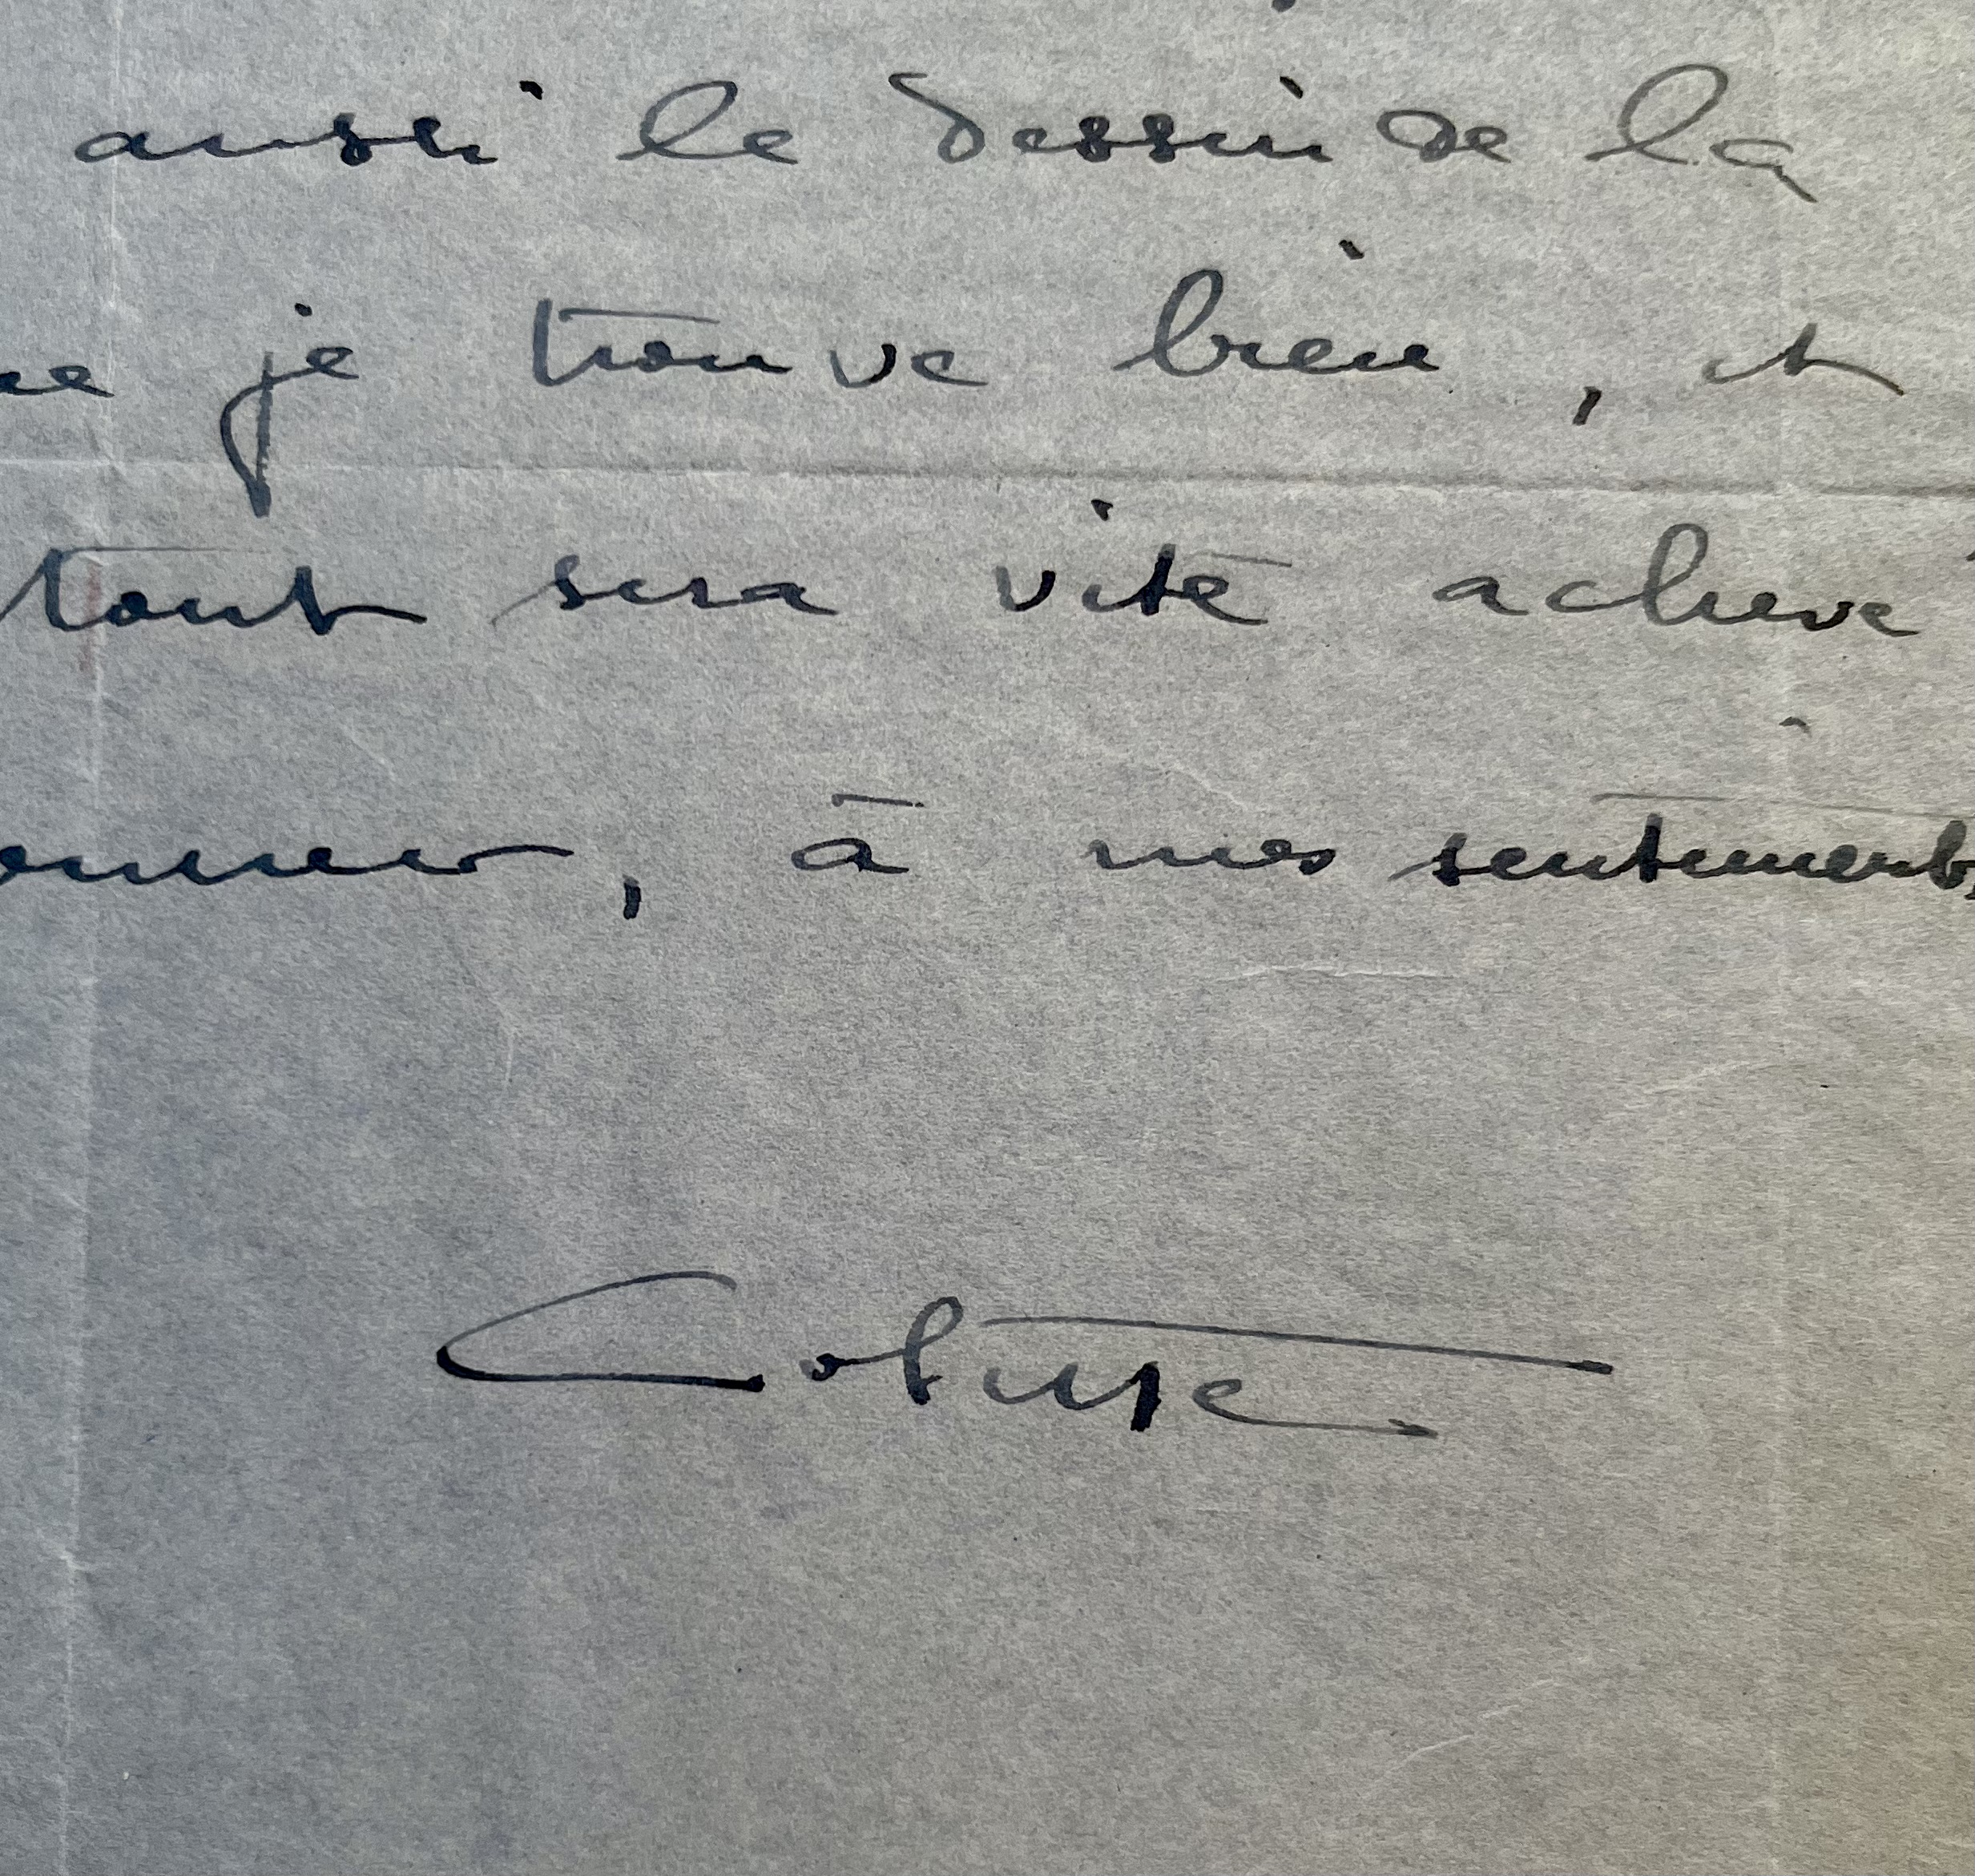 aussi le dessin de la
je trouve bien, et
tout sera vite achevé
à mes sentiments
Colette